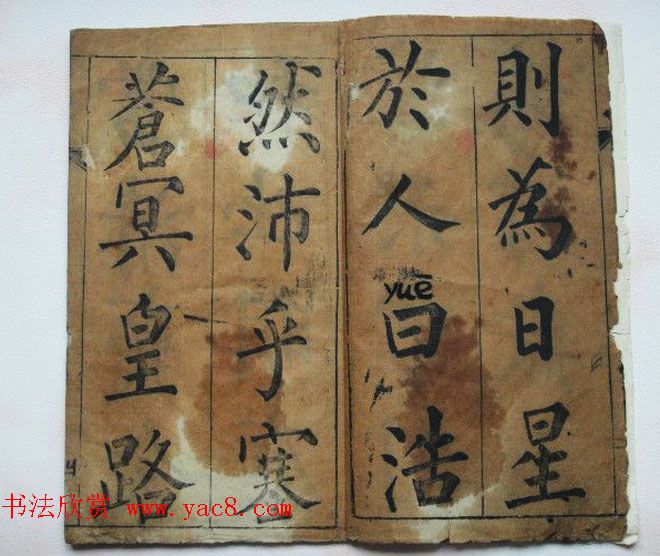 則為日星
於人曰浩
yuē
然沛乎塞
蒼冥皇路
书法欣赏 www.yac8.com